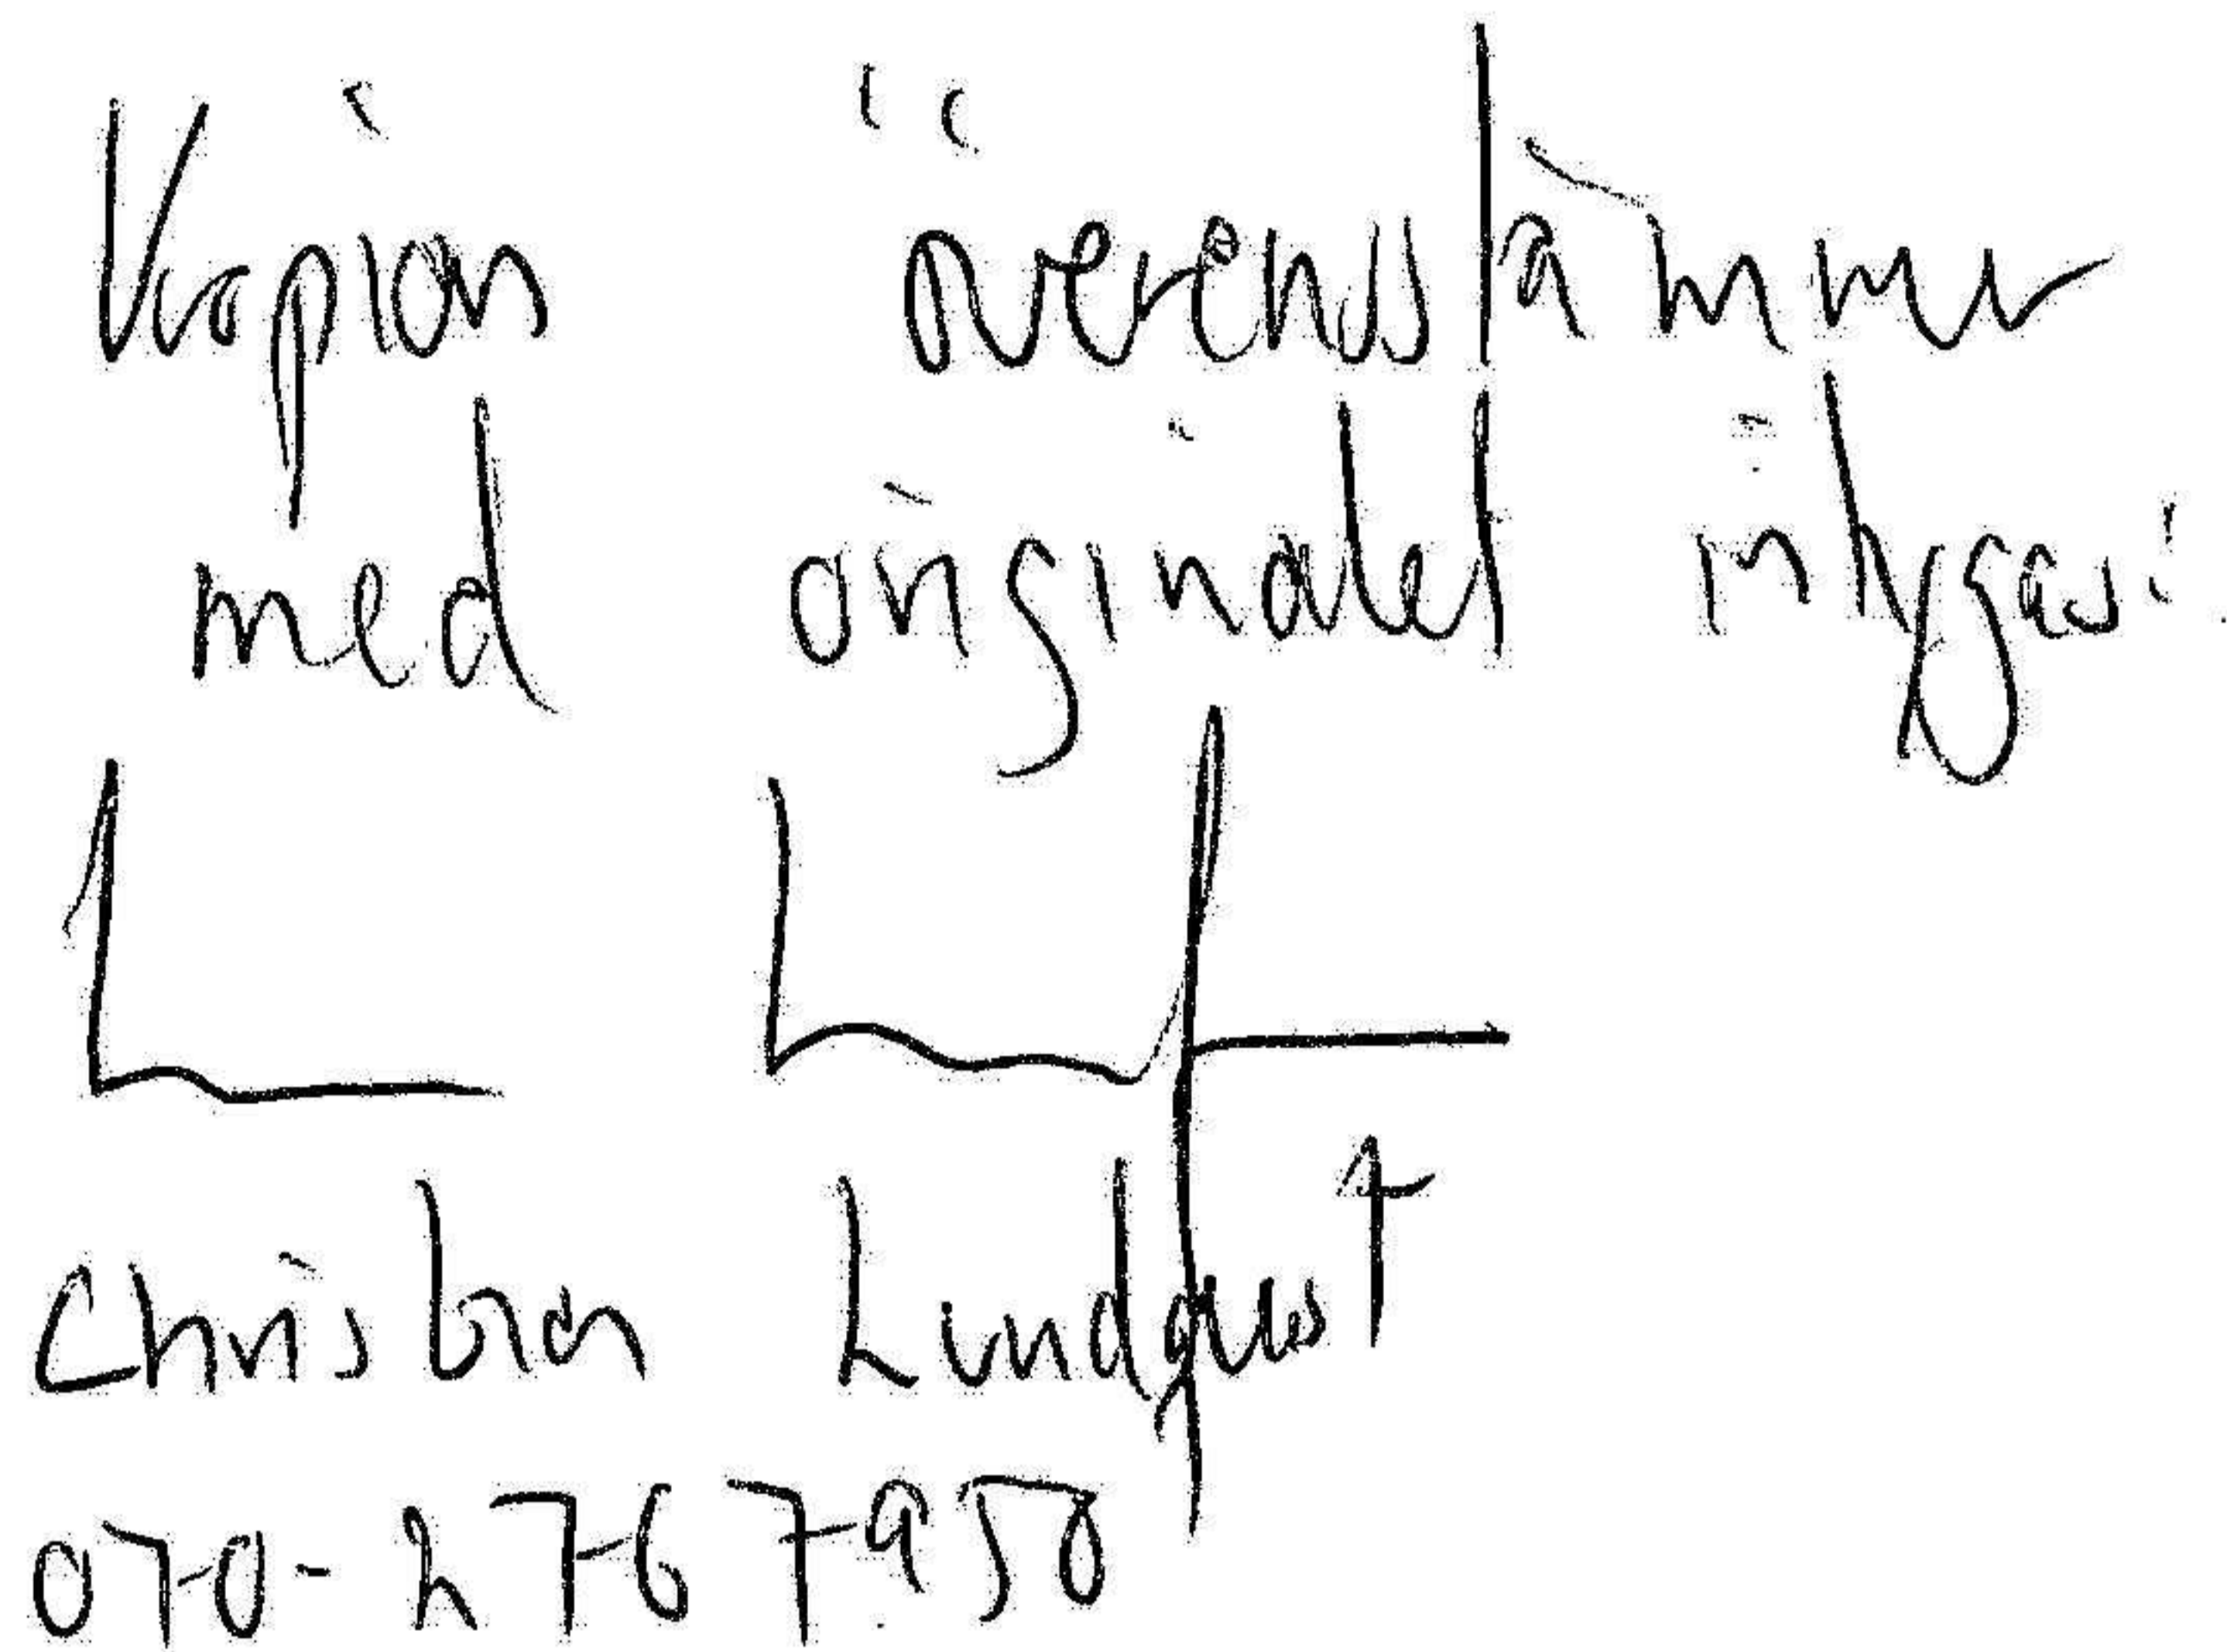 Kopian överensstämmer
med originalet intygas:
Christian Lindqvist
070-276 7950